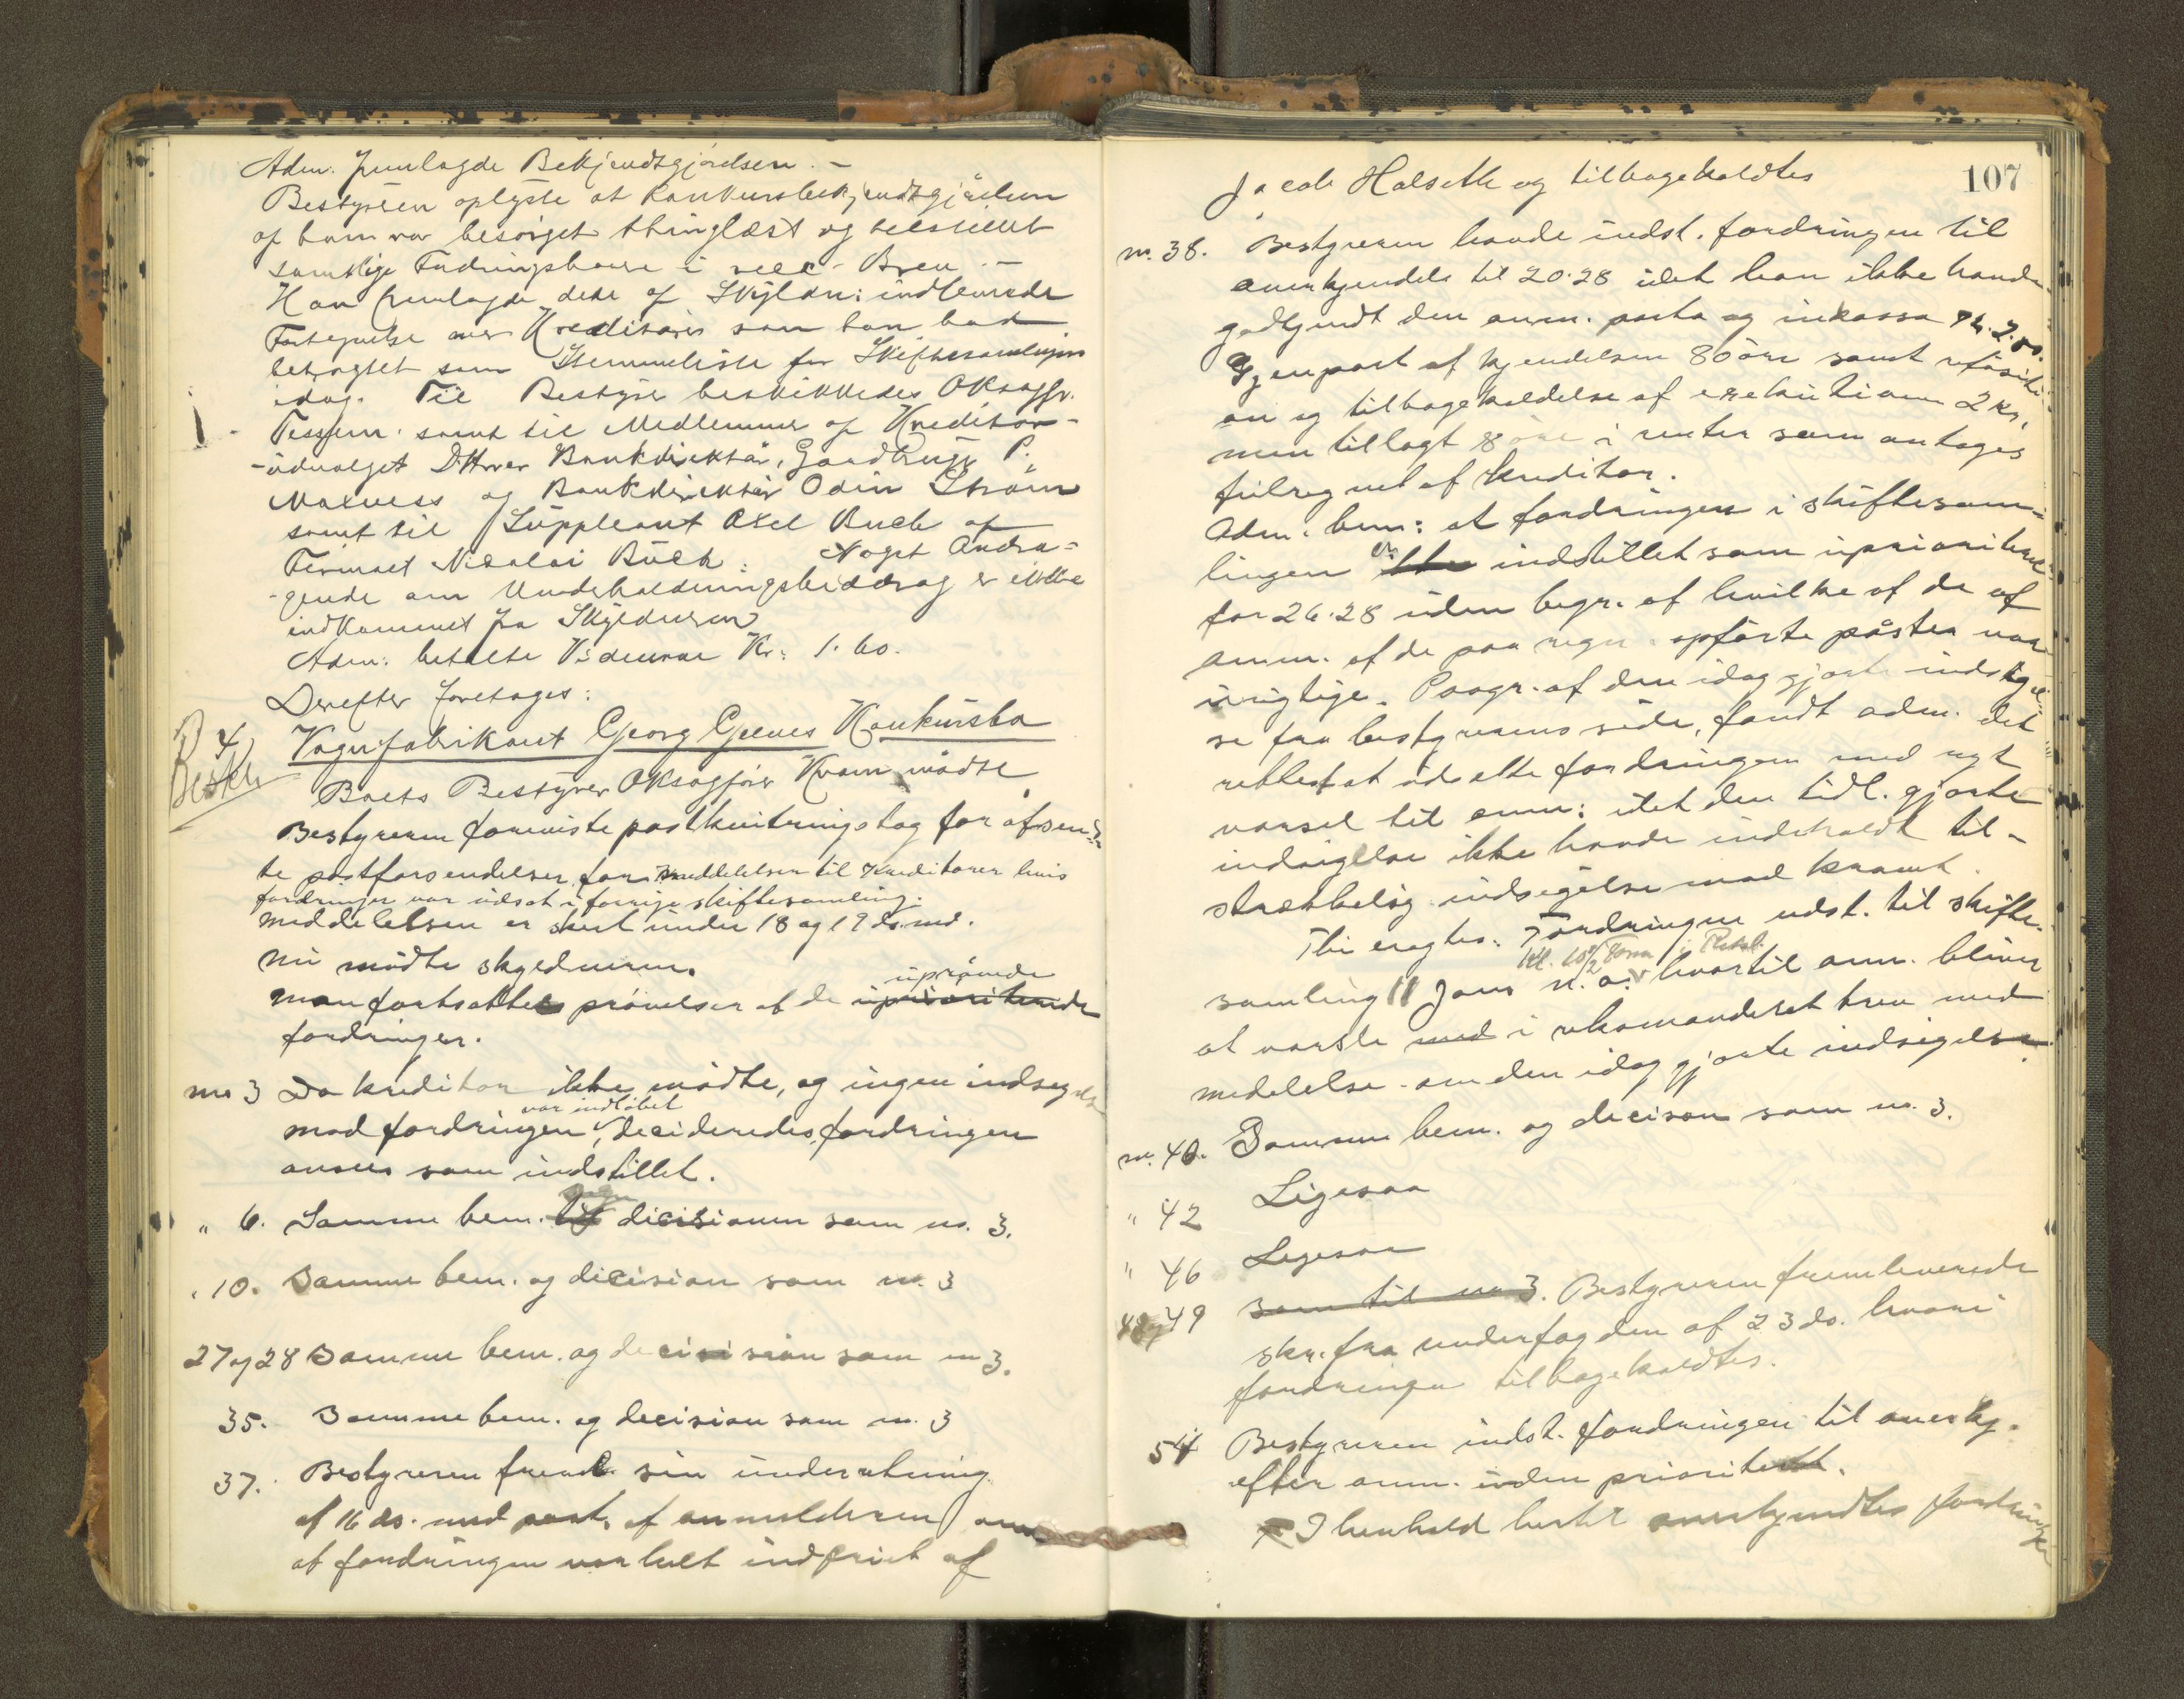 Adm. fremlagde Bekjendtgjørelsen. –
Bestyreren oplyste at Konkursbekjendtgjørelsen
af ham var besørget thinglæst og tilstillet
samtlige Fordringshavere i rec. Brev. –
Han fremlagde den af Skyldn: indleverede
Fortegnelse over Kreditorer som han bad
betragtet som Stemmeliste for Skiftesamlingen
idag. Til Bestyrer beskikkedes OKsagfr.
Tessem samt til Medlemmer af Kreditor-
-udvalget DHrrer Bankdirektør, Gaardbruger P.
Maxness og Bankdirektør Odin Strøm
samt til Suppleant Axel Buck af
Firmaet Nicolai Buck. Noget Andra=
-gende om Underholdningsbidrag er ikke
indkommet fra Skyldneren
Adm: betalte Vidnerne Kr: 1.60.
Derefter foretages:
4/ Beskr
Vognfabrikant Georg Grenes Konkursbo
Boets Bestyrer OKsagfører Kvam mødte
Bestyreren foreviste postkvitteringsbog for afsen-
te postforsendelser for meddelelsen til Kreditorer hvis
fordringer var udsat i forrige skiftesamling.
meddelelsen er skeet under 18 og 19 ds. md.
Nu mødte skyldneren.
uprøvede
man fortsatte prøvelsen af de uprioriterede
fordringer.
no 3 Da kreditor ikke mødte, og ingen indsigelse
var indløbet
mod fordringen, decideredes, fordringen
ansees som indstillet.
" 6. Samme bem. og decisionen som no. 3.
" 10. Samme bem. og decision som no. 3
27 og 28 Samme bem. og decision som no 3.
35. Samme bem. og decision som no. 3
37. Bestyreren freml. sin underretning
af 16 ds. med paat. af anmelderen om
at fordringen var helt indfriet af
107
Jacob Halseth og tilbagekaldtes
no. 38. Bestyreren havde indst. fordringen til
anerkjendelse til 20.28 idet han ikke havde
godkjendt den anm. porto og inkasso kr. 2.00.
Gjenpart af kjendelsen 80 øre samt
og tilbagekaldelse af exekutionen 2 kr,
men tillagt 8 øre i renter som antages
feilregnet af kreditor.
Adm. bem: at fordringen i skiftesam-
lingen er indstillet som uprioriteret
for 26.28 uden begr. af hvilke af de af
anm. af de paa regn. opførte poster var
urigtige. Paagr. af den idag gjorte indsigel-
se fra bestyrerens side, fandt adm. det
rettest at udsætte fordringen med nyt
varsel til anm: idet den tidl. gjorte
indsigelse ikke havde indeholdt til-
strækkelig indsigelse mod kravet.
Thi eragtes: Fordringen udst. til skifte-
Kl. 10 1/2 Form i Retsl.
samling 11 Janr n. a. hvortil anm. bliver
at varsle med i rekomanderet brev med
medelelse om den idag gjorte indsigelse.
no. 40. Samme bem. og decison som no. 3.
" 42 Ligesaa
" 46 Ligesaa
48 og 49 som til no 3. Bestyreren fremleverede
skr. fra underfogden af 23 ds. hvori
fordringen tilbagekaldtes.
54 Bestyreren indst. fordringen til anerkj.
efter anm. uden prioritet.
I henhold hertil anerkjendtes fordringen